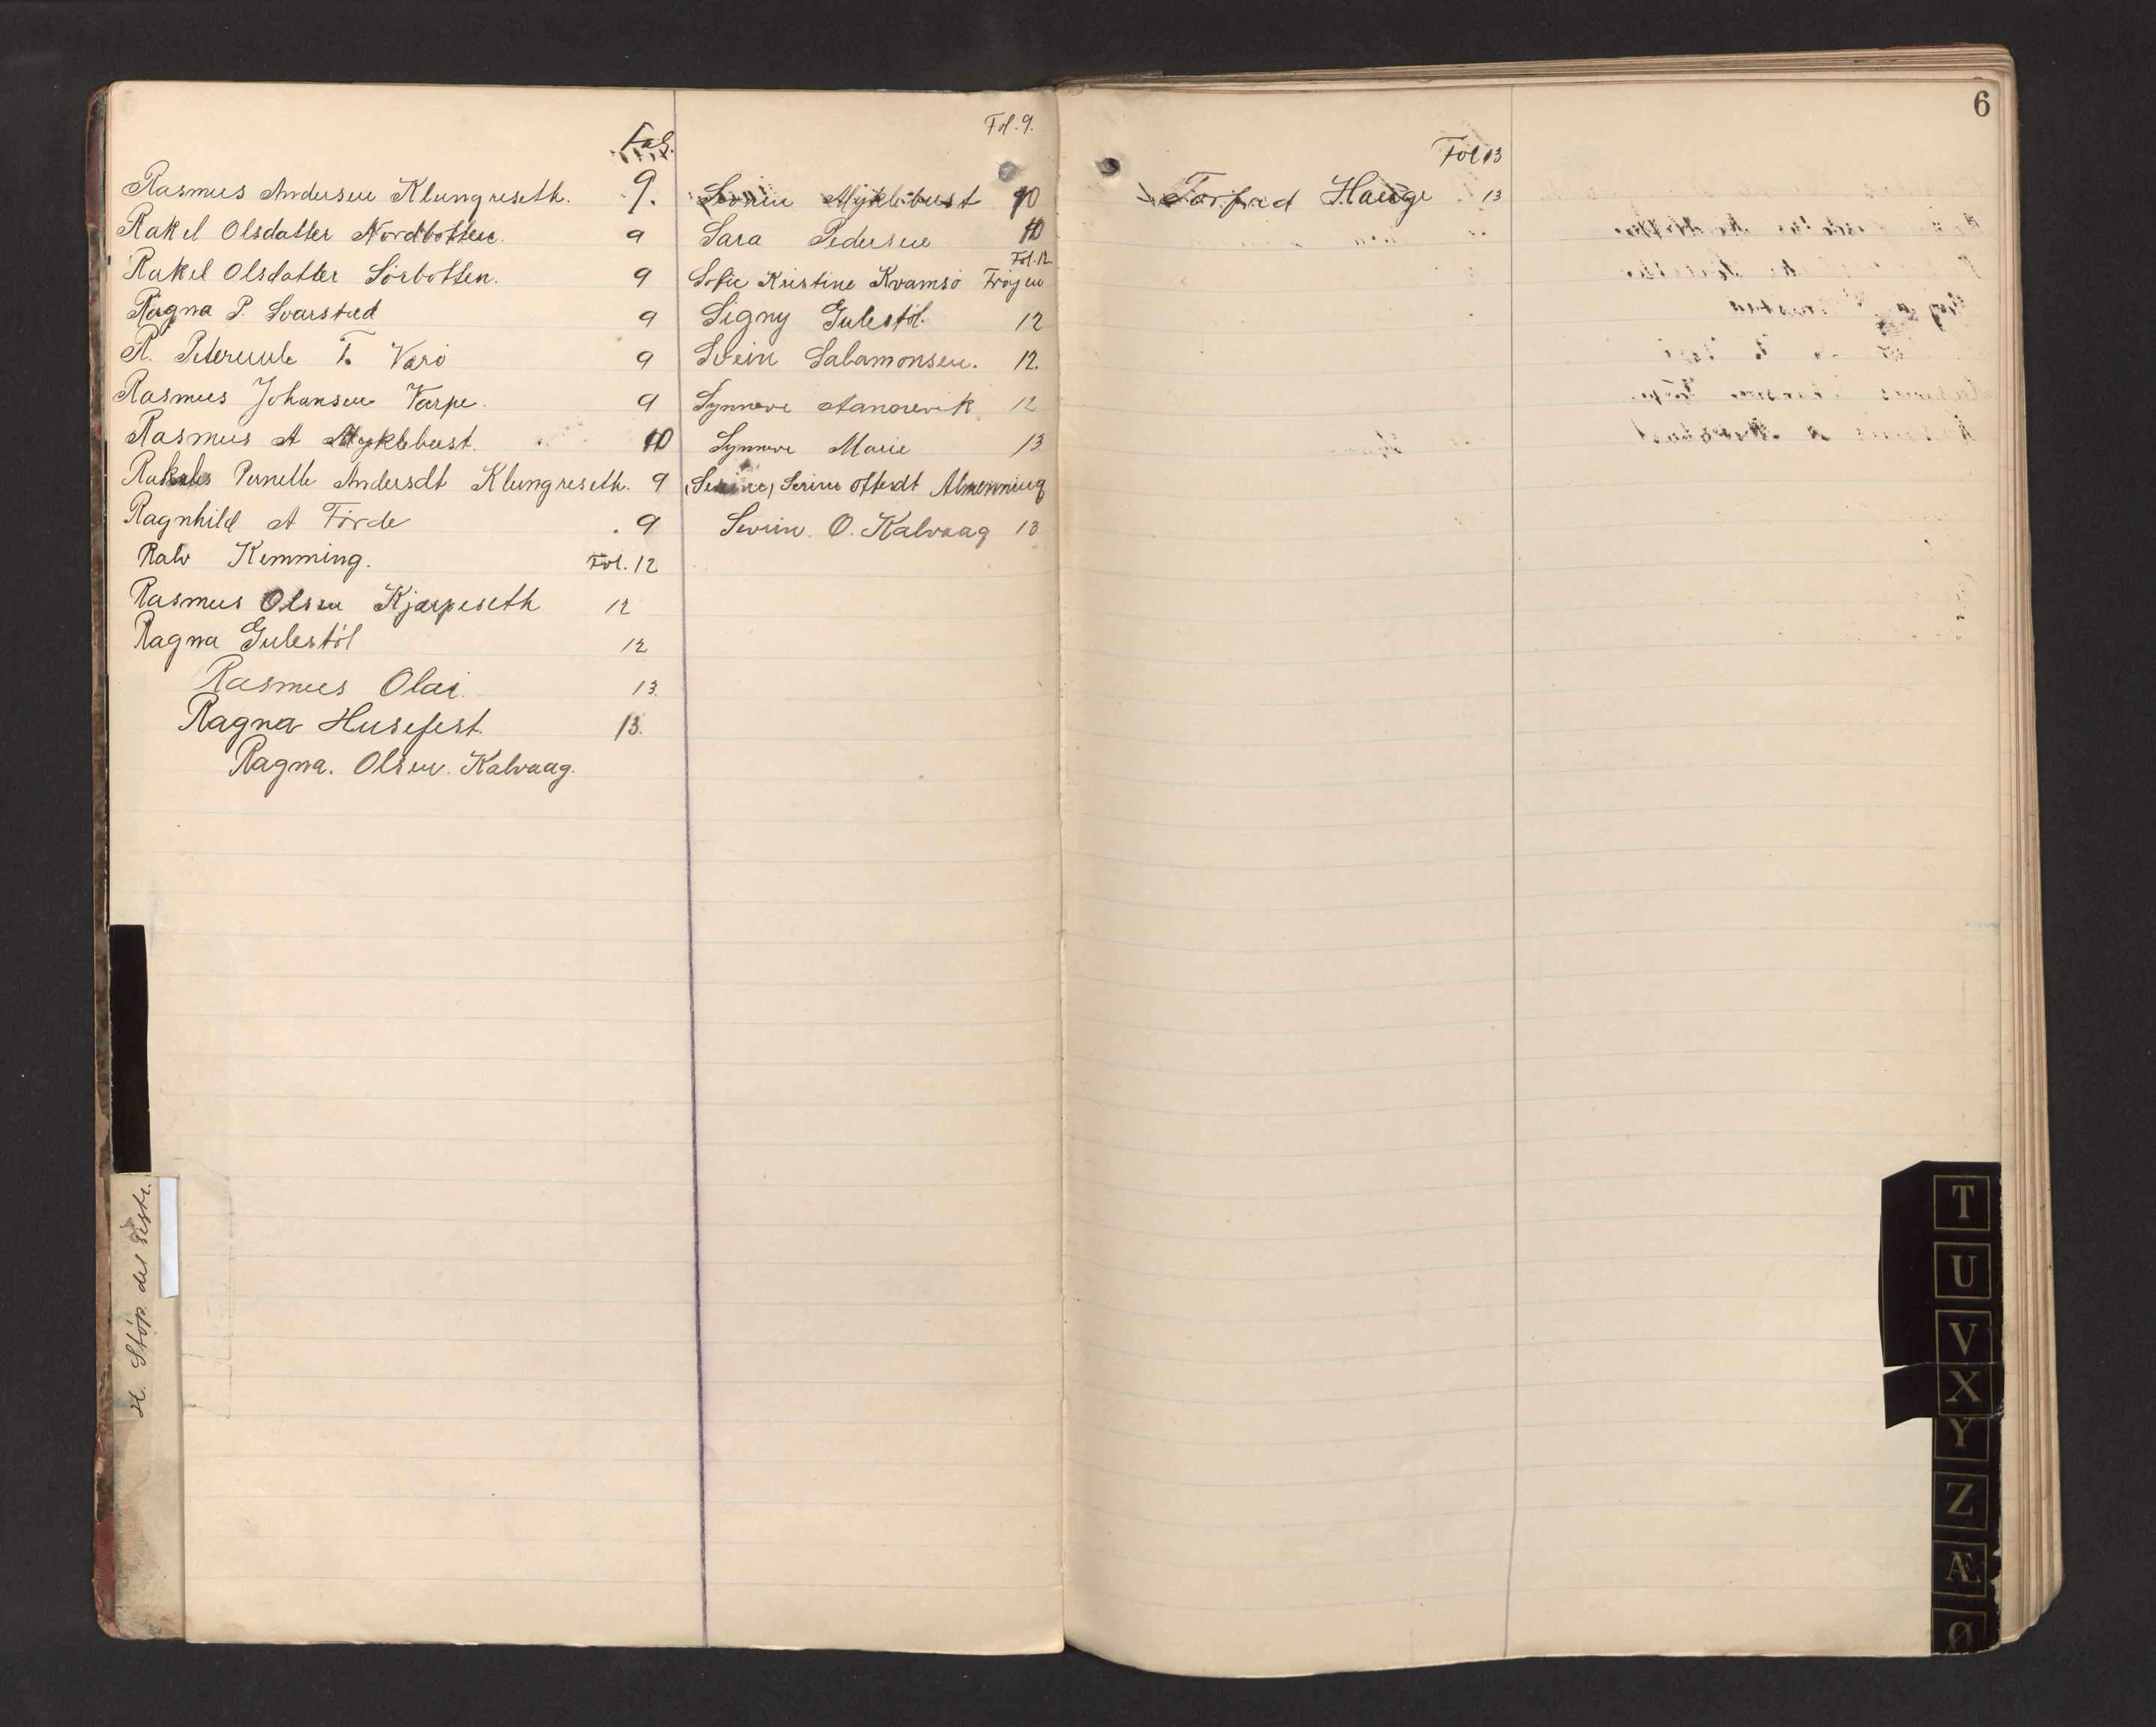 Fol.
Rasmus Andersen Klungreseth. 9.
Rakel Olsdatter Nordbotten. 9
Rakel Olsdatter Sørbotten. 9
Ragna P. Svarstad 9
R. Peternule T. Varø 9
Rasmus Johansen Varpe. 9
Rasmus A Myklebust. 10
Pernelle Andersdt Klungreseth. 9
Ragnhild A Förde 9
Ralv Kemming. Fol. 12
Rasmus Olsen Kjærpeseth 12
Ragna Gulestöl 12
Rasmus Olai. 13.
Ragna Husefest. 13.
Ragna. Olsen. Kalvaag.
H. Støp. det
Fol. 9.
Myklebust 10
Sara Pedersen 10
Fol. 12.
Sofie Kristine Kvamsö Fröjen
Signy Gulestöl. 12
Svein Salamonsen. 12.
Synneve 12
Synneve Marie 13
Serine Oftedt Almenning
Severin. O. Kalvaag 13
6
Fol 13
Torfred Hauge 13
T
U
V
X
Y
Z
Æ
Ø